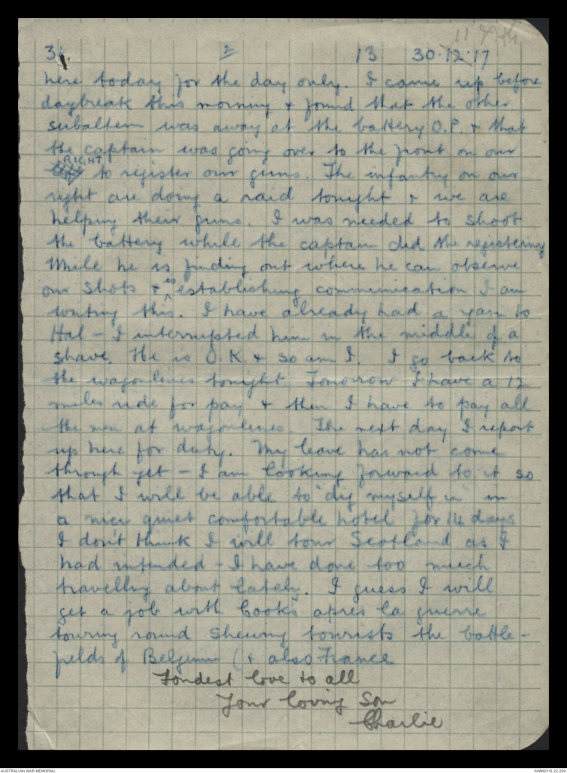 3. 2 13 30.12.17
here today for the day only. I came up before
daybreak this morning & found that the other
subaltern was away at the battery O.P. & that
the captain was going over to the front on our
RIGHT
to register our guns. The infantry on our
right are doing a raid tonight & we are
helping their guns. I was needed to shoot
the battery while the captain did the registering
While he is finding out where he can observe
our shots & is establishing communication I am
writing this. I have already had a yarn to
Hal - I interrupted him in the middle of a
shave. He is O.K & so am I. I go back to
the wagonlines tonight. Tomorrow I have a 12
miles ride for pay & then I have to pay all
the men at wagonlines. The next day I report
up here for duty. My leave has not come
through yet - I am looking forward to it so
that I will be able to "dig myself in" in
a nice quiet comfortable hotel for 14 days
I don't think I will tour Scotland as I
had intended - I have done too much
travelling about lately. I guess I will
get a job with Cook's après la guerre
touring round shewing tourists the battle-
fields of Belgium (& also France
Fondest love to all
Your loving Son
Charlie
AUSTRALIAN WAR MEMORIAL